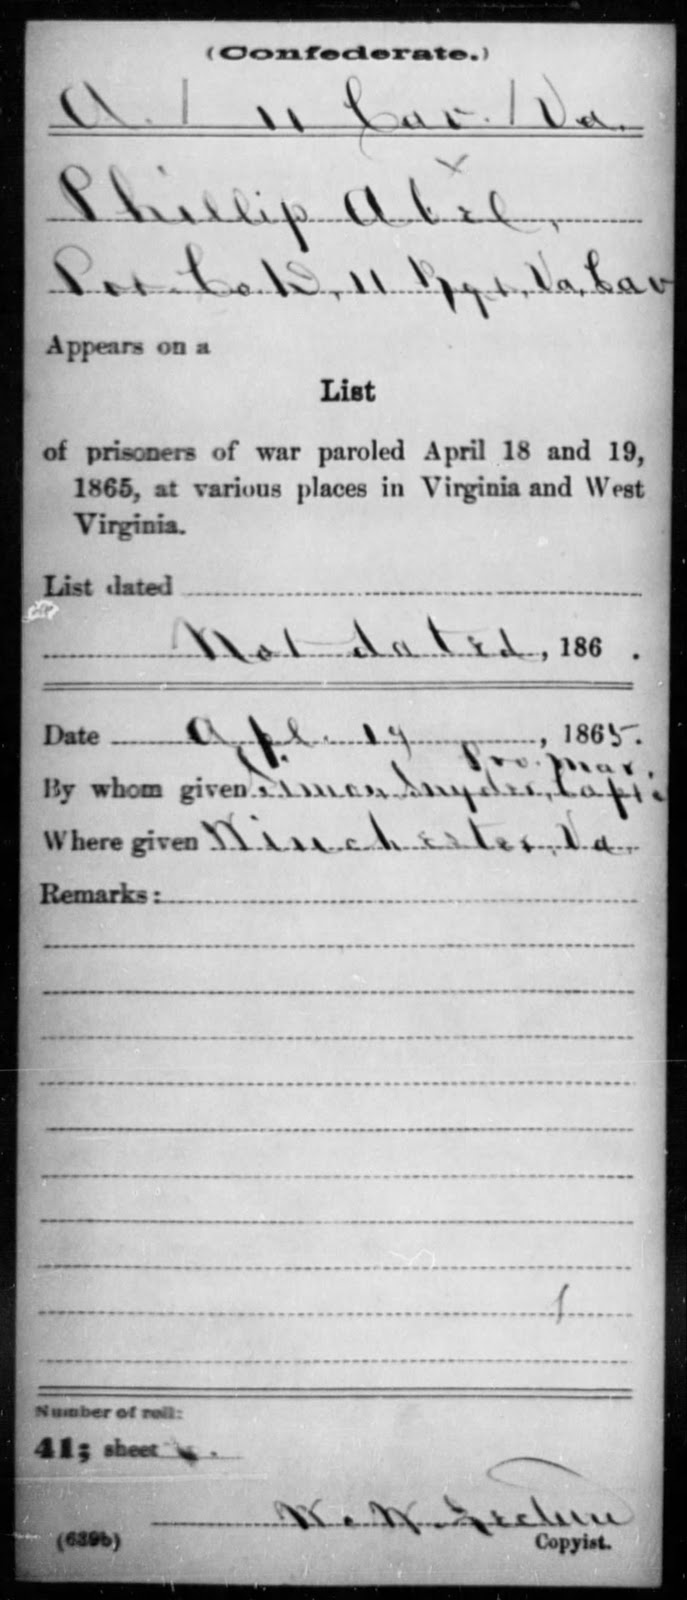 (Confederate.)
A. | 11 Cav. | Va.
x
Phillip Abel,
Pvt. Co. D, 11 Rgt., Va. Cav
Appears on a
List
of prisoners of war paroled April 18 and 19,
1865, at various places in Virginia and West
Virginia.
List dated
Not dated, 186 .
Date Apl. 19, 1865.
Pro. Mar.
By whom given Simon Snyder, Capt.
Where given Winchester, Va.
Remarks:
1
Number of roll:
41; sheet
W. W.
(639b) Copyist.